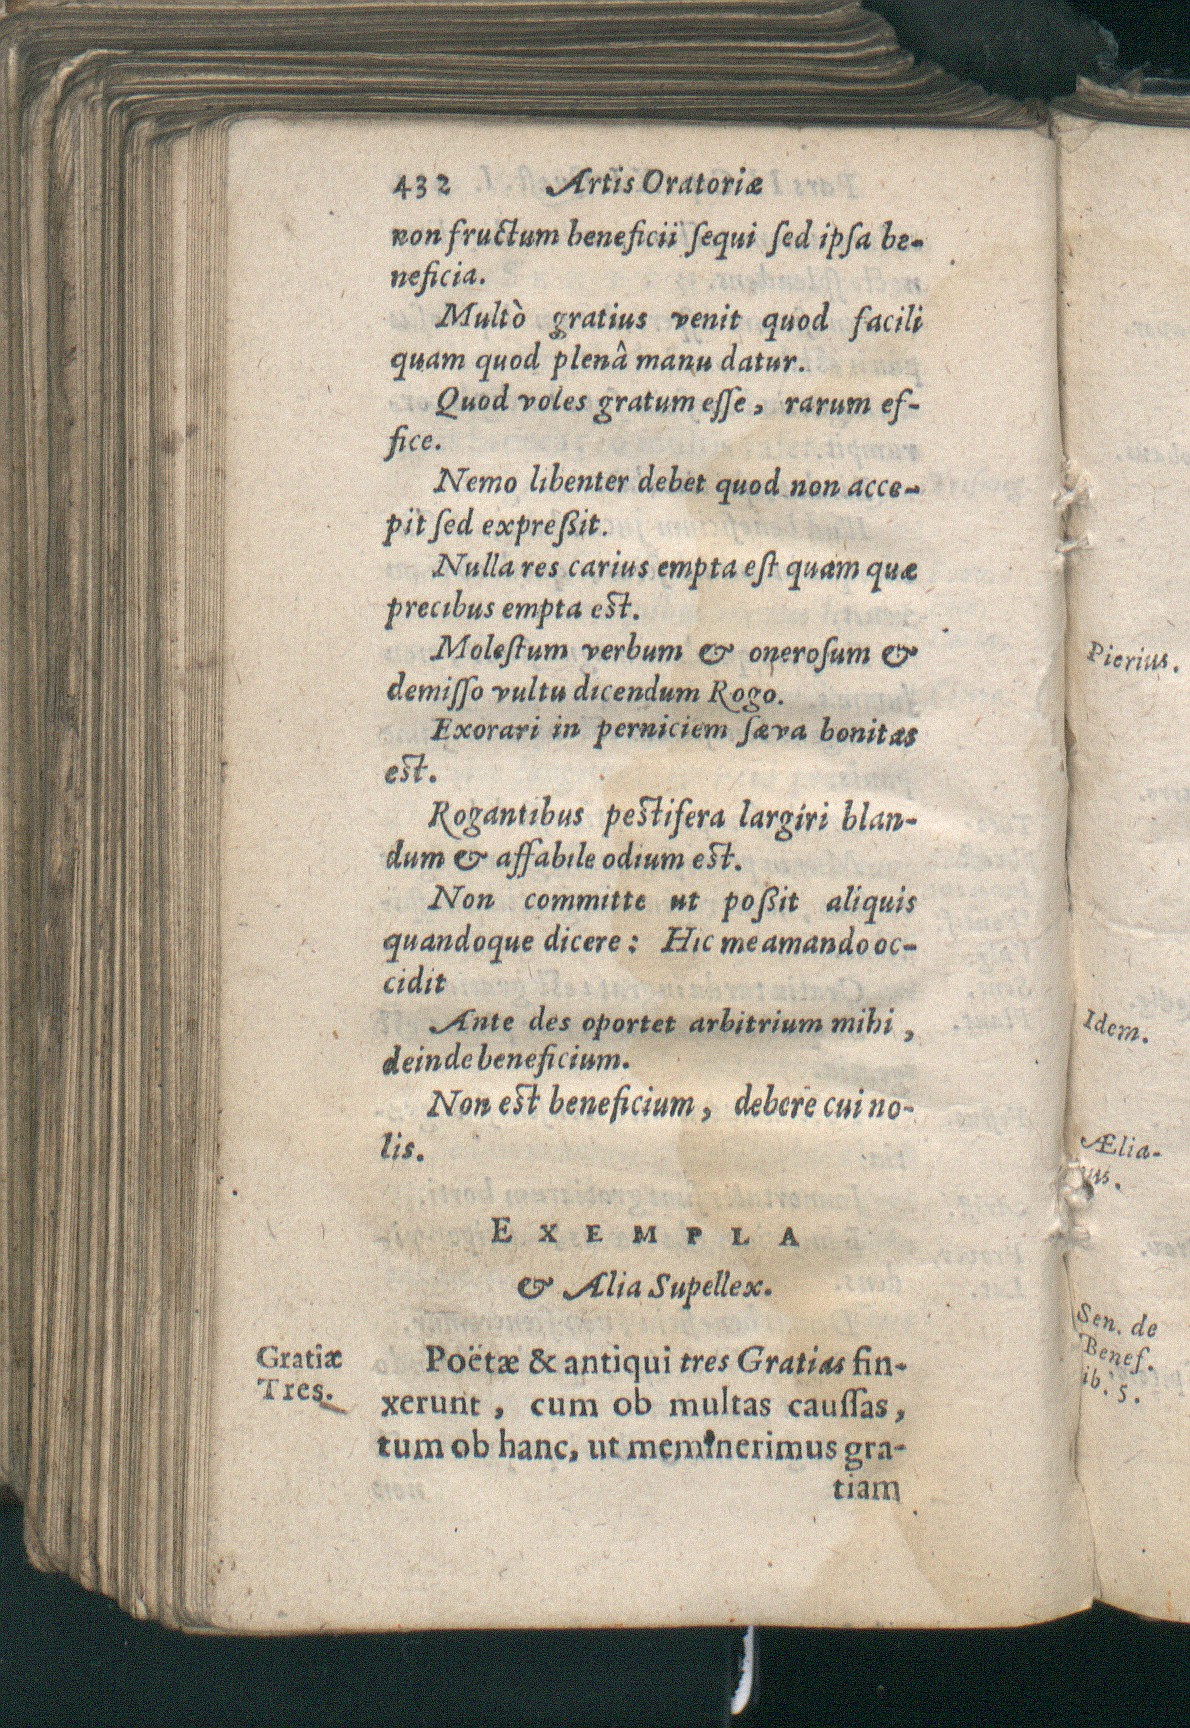 432 Artis Oratoriæ
non fructum beneficii ſequi ſed ipſa be-
neficia.
Multò gratius venit quod facili
quam quod plenâ manu datur.
Quod voles gratum eſſe, rarum ef-
fice.
Nemo libenter debet quod non acce-
pit ſed expreßit.
Nulla res carius empta eſt quam quæ
precibus empta eſt.
Moleſtum verbum & oneroſum &
demiſſo vultu dicendum Rogo.
Exorari in perniciem ſæva bonitas
eſt.
Rogantibus peſtifera largiri blan-
dum & affabile odium eſt.
Non committe ut poßit aliquis
quandoque dicere: Hic me amando oc-
cidit
Ante des oportet arbitrium mihi,
deinde beneficium.
Non eſt beneficium, debere cui no-
lis.
EXEMPLA
& Alia Supellex.
Gratiæ
Tres.
Poëtæ & antiqui tres Gratias fin-
xerunt, cum ob multas cauſſas,
tum ob hanc, ut meminerimus gra-
tiam
Pierius.
Idem.
Ælia-
us.
Sen. de
Benef.
ib. 5.